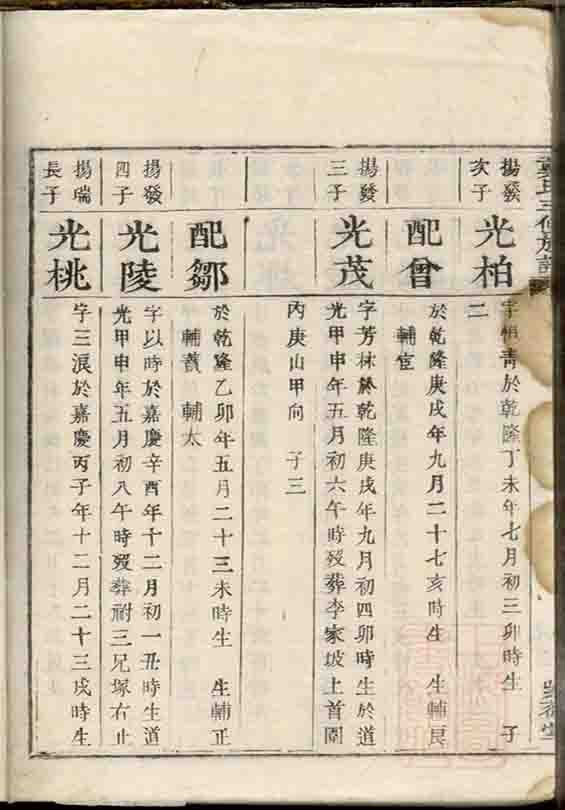 揚發
次子
光柏
字恒青於乾隆丁未年七月初三卯時生 子
二
配曾
於乾隆庚戌年九月二十七亥時生 生輔良
輔宦
揚發
三子
光茂
字芳林於乾隆庚戌年九月初四卯時生於道
光甲申年五月初六午時歿葬李家坡上首圍
內庚山甲向 子三
配鄒
於乾隆乙卯年五月二十三未時生 生輔正
輔贊 輔太
揚發
四子
光陵
字以時於嘉慶辛酉年十二月初一丑時生道
光甲申年五月初八午時歿葬祔三兄塚右止
揚瑞
長子
光桃
字三浪於嘉慶丙子年十二月二十三戌時生